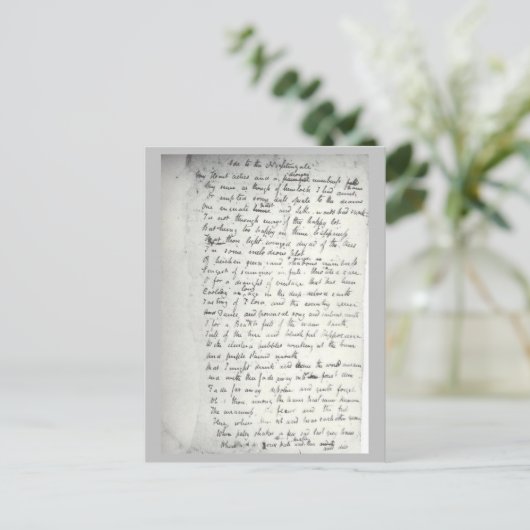 Ode to the Nightingale
My Heart aches and a drowsy numbness falls
My sense as though of hemlock I had drunk
Or emptied some dull opiate to the drains
One minute past and Lethe-wards had sunk
Tis not through envy of thy happy lot
But being too happy in thine happiness
That thou light winged dryad of the trees
In some melodious plot
Of beechen green and shadows numberless
Singest of summer in full-throated ease
O for a draught of vintage that has been
Cooling an age in the deep-delved earth
Tasting of Flora and the country green
And Dance, and provencal song and sunburnt mirth
O for a Beaker full of the warm South
Full of the true and blushful Hippocrene
With cluster'd bubbles winking at the brim
And purple stained mouth
That I might drink and leave the world unseen
And with thee fade away into the forest dim
Fade far away dissolve and quite forget
What thou among the leaves hast never known
The weariness, the fever and the fret
Here, where men sit and hear each other groan
Where palsy shakes a few sad last grey hairs
Where youth grows pale and thin and dies